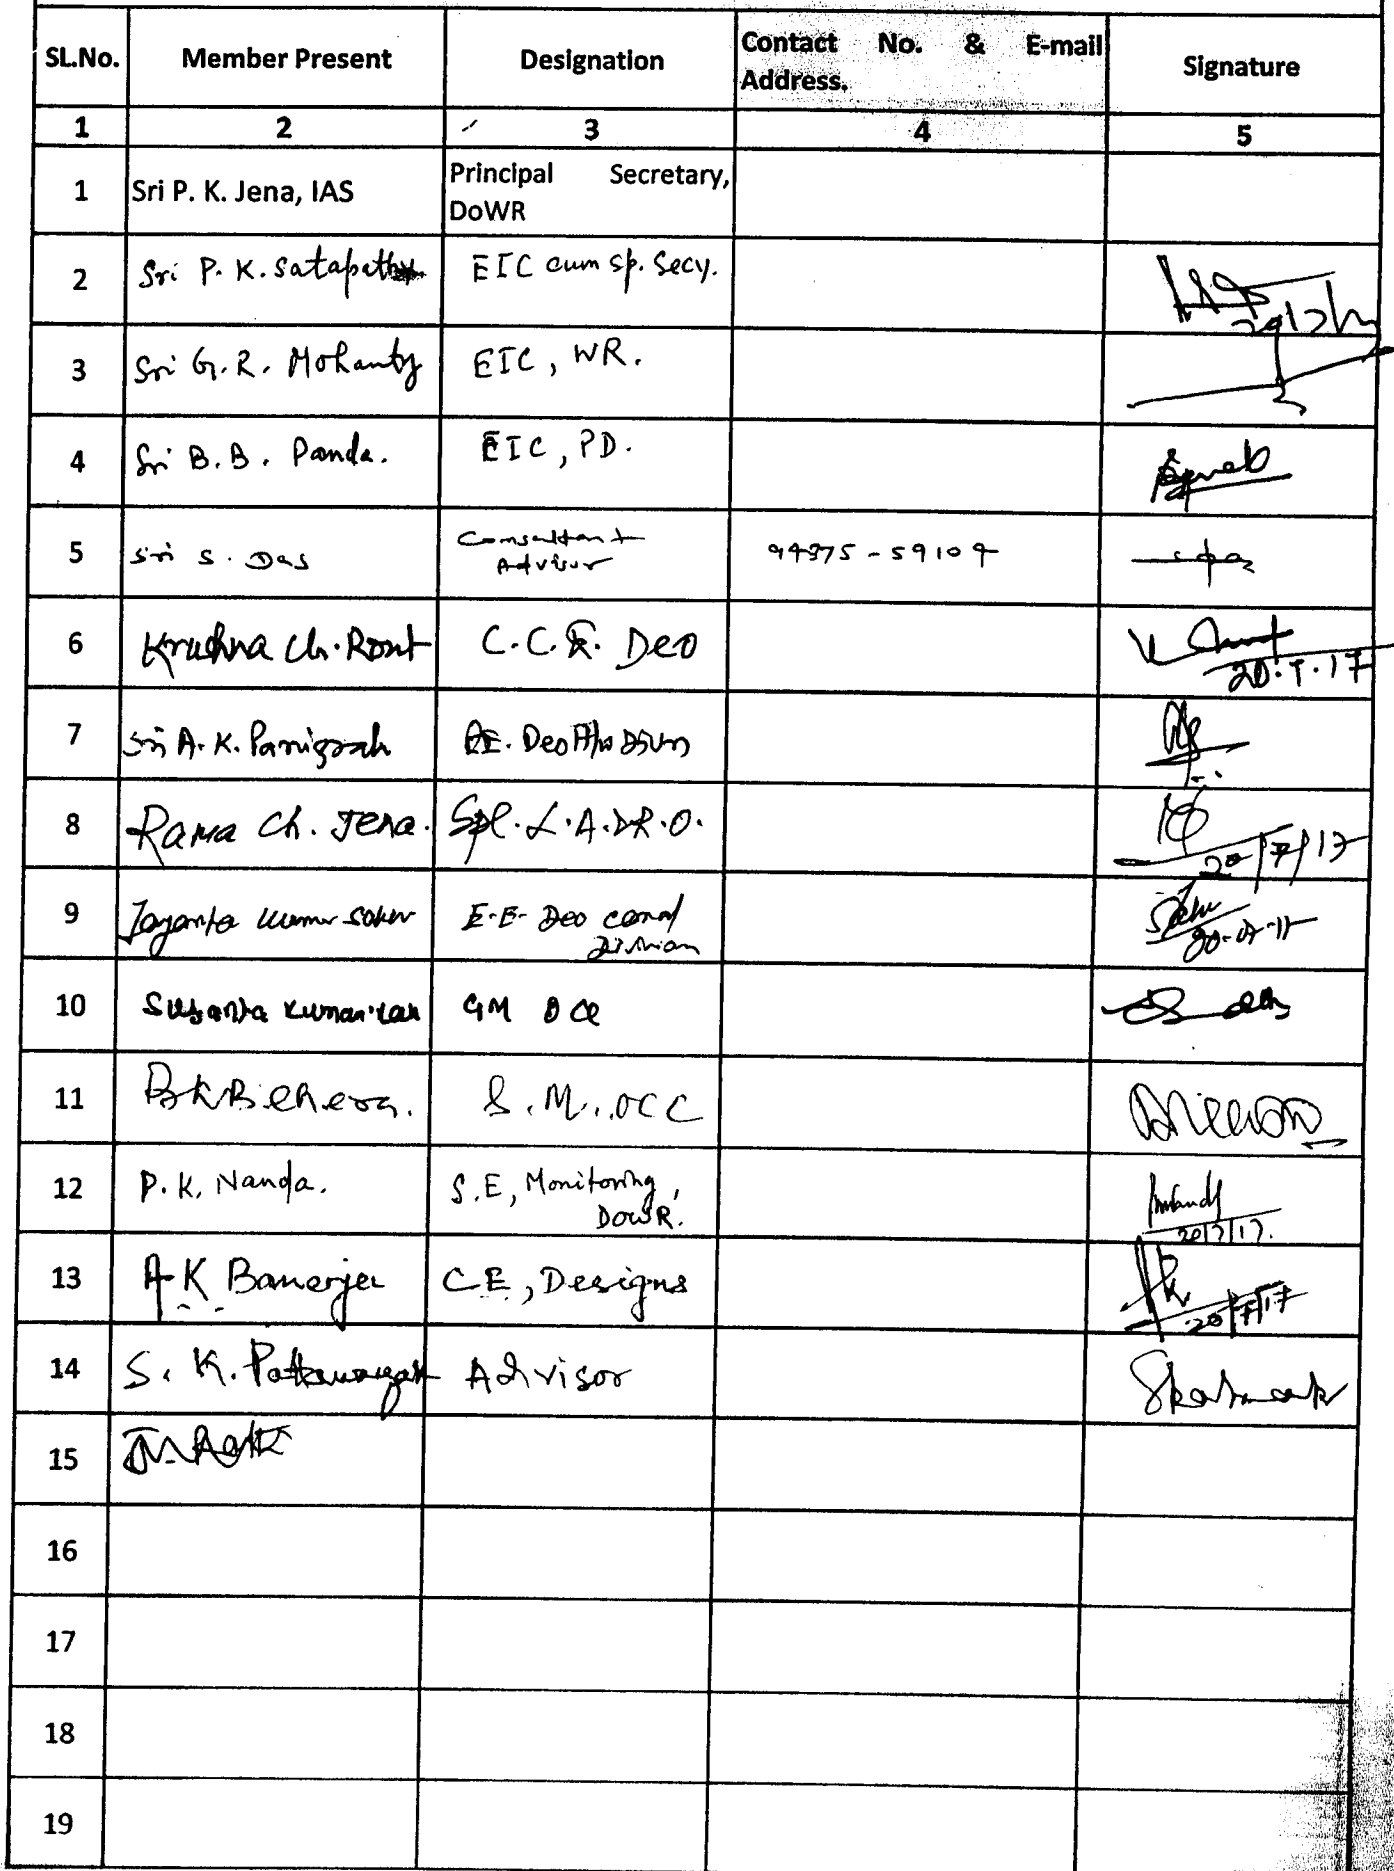 SL.No. Member Present Designation Contact No. & E-mail Address. Signature
1 2 3 4 5
1 Sri P. K. Jena, IAS Principal Secretary, DoWR
2 Sri P. K. Satapathy EIC cum Sp. Secy.
3 Sri G. R. Mohanty EIC, WR.
4 Sri B. B. Panda. EIC, PD.
5 Sri S. Das Consultant Advisor
6 Krushna Ch. Rout C.C.E. Deo 20.7.17
7 Sri A. K. Panigrahi Deo
8 Rama Ch. Jena. Spl. L.A.&R.O. 20/7/17
9 Jayanta Kumar Sahu E.E. Deo canal Division
10 Susanta Kumar GM OCC
11 BK Behera. S.M. OCC
12 P. K. Nanda. S.E, Monitoring, DoWR. 20/7/17.
13 A K Banerjee CE, Designs 20/7/17
14 S. K. Pattanayak Advisor
15
16
17
18
19